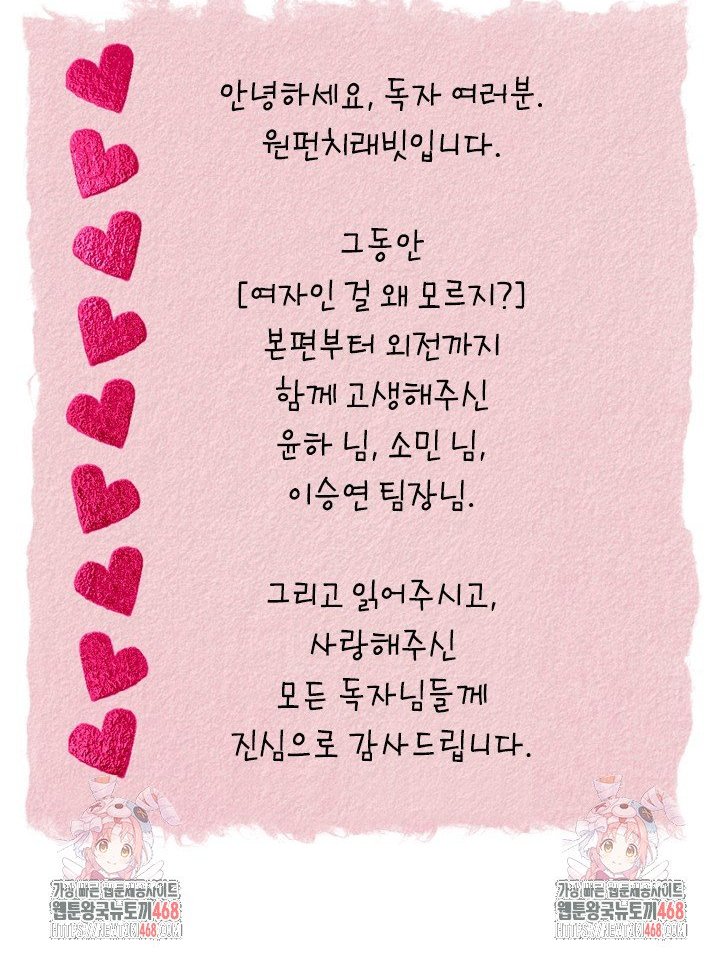 안녕하세요, 독자 여러분.
원펀치래빗입니다.
그동안
[여자인 걸 왜 모르지?]
본편부터 외전까지
함께 고생해주신
윤하 님, 소민 님,
이승연 팀장님.
그리고 읽어주시고,
사랑해주신
모든 독자님들께
진심으로 감사드립니다.
가장 빠른 웹툰제공사이트
웹툰왕국뉴토끼468
HTTPS://NEWTOKI468.COM
가장 빠른 웹툰제공사이트
웹툰왕국뉴토끼468
HTTPS://NEWTOKI468.COM